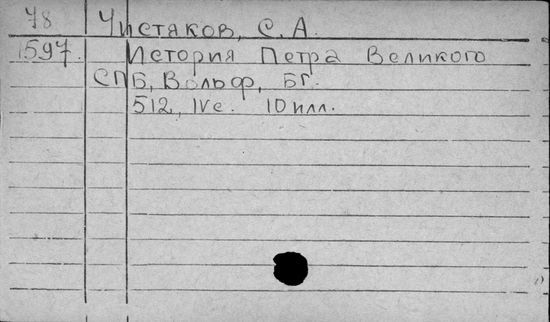 78 Чистяков, С. А.
1597. История Петра Великого
СПБ, Вольф, БГ.
512, IVс. 10 илл.